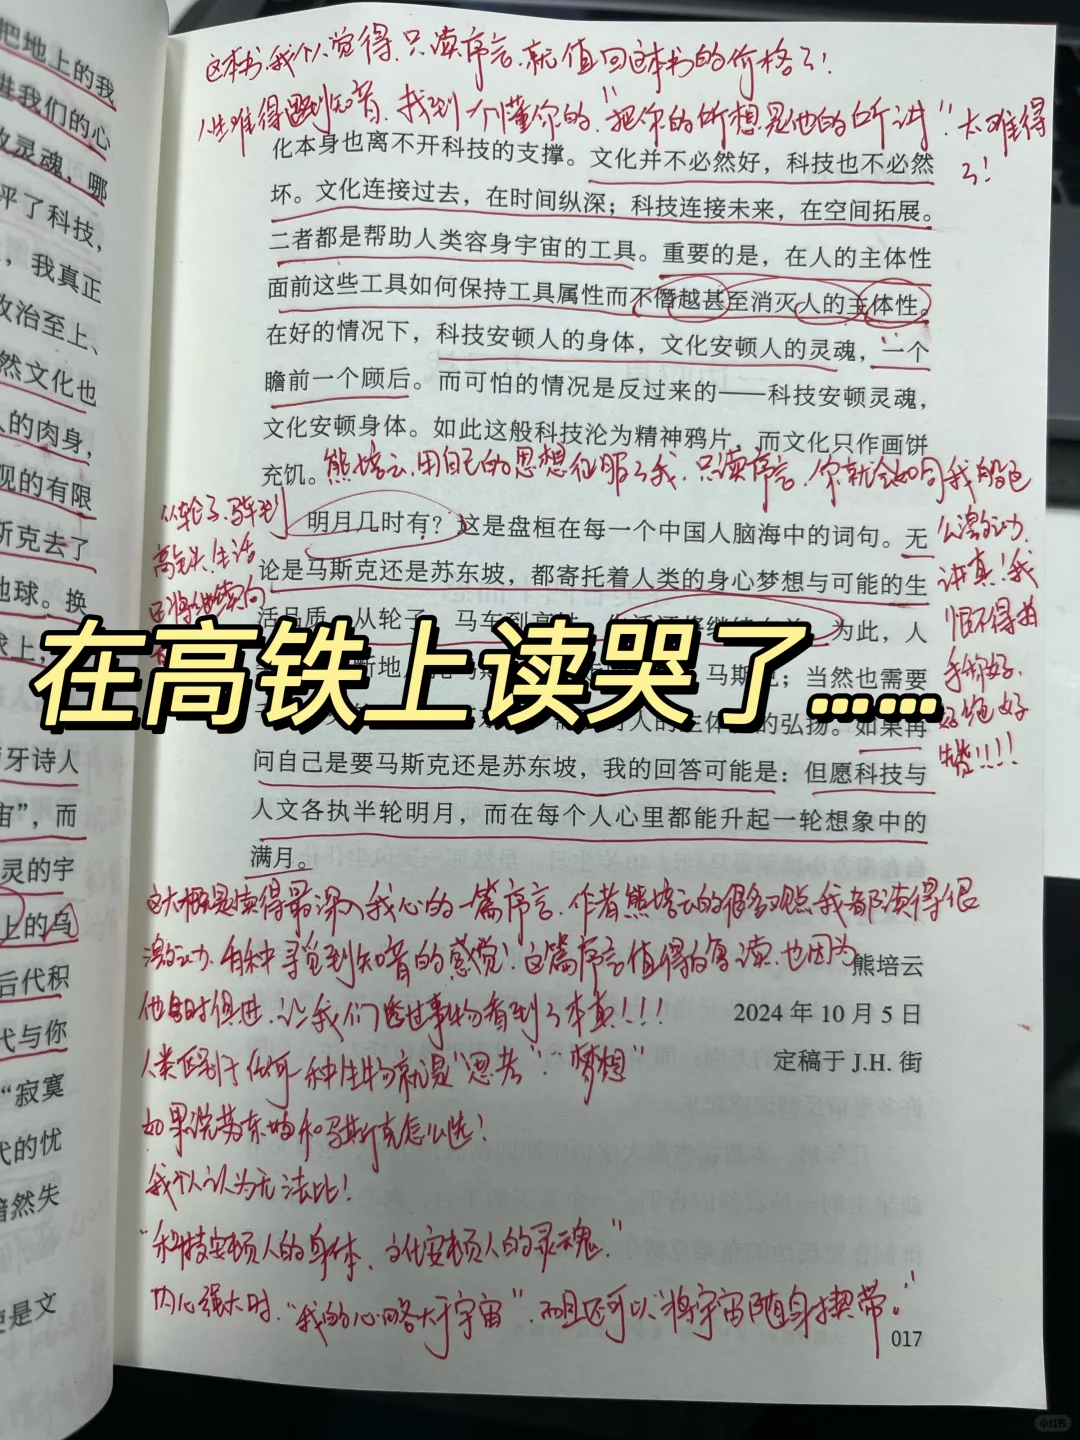 把地上的我
进我们的心
放灵魂，哪
评了科技，
，我真正
政治至上、
然文化也
人的肉身，
观的有限
斯克去了
地球。换
球上，
牙诗人
宙”，而
灵的宇
上的乌
后代积
代与你
“寂寞
代的忧
黯然失
更是文
这本书，我个人觉得，只读序言，就值回这本书的价格了！
人生难得遇到知音，找到一个懂你的，“把你的所想是他的所讲”，太难得
了！
化本身也离不开科技的支撑。文化并不必然好，科技也不必然
坏。文化连接过去，在时间纵深；科技连接未来，在空间拓展。
二者都是帮助人类容身宇宙的工具。重要的是，在人的主体性
面前这些工具如何保持工具属性而不僭越甚至消灭人的主体性。
在好的情况下，科技安顿人的身体，文化安顿人的灵魂，一个
瞻前一个顾后。而可怕的情况是反过来的——科技安顿灵魂，
文化安顿身体。如此这般科技沦为精神鸦片，而文化只作画饼
充饥。
熊培云，用自己的思想征服了我，只读序言，你就会如同我般这
么激动，
讲真！我
恨不得拍
手称好，
好绝好
赞！！！！
从轮子、马车到
高铁，生活
还将继续向
明月几时有？这是盘桓在每一个中国人脑海中的词句。无
论是马斯克还是苏东坡，都寄托着人类的身心梦想与可能的生
活品质。从轮子、马车到高铁，生活还将继续向前。为此，人
断地 马斯克；当然也需要
人的主体性的弘扬。如果再
问自己是要马斯克还是苏东坡，我的回答可能是：但愿科技与
人文各执半轮明月，而在每个人心里都能升起一轮想象中的
满月。
在高铁上读哭了……
这大概是读得最深入我心的一篇序言，作者熊培云的很多观点我都读得很
激动，有种寻觅到知音的感觉！这篇序言值得的复读，也因为
他与时俱进，让我们透过事物看到了本真！！！
熊培云
2024 年 10 月 5 日
定稿于 J.H. 街
人类区别于任何一种生物就是“思考”“梦想”
如果说苏东坡和马斯克怎么选？
我个人认为无法比！
“科技安顿人的身体，文化安顿人的灵魂，”
内心强大时，“我的心略大于宇宙”，而且还可以“将宇宙随身携带。”
017
小红书